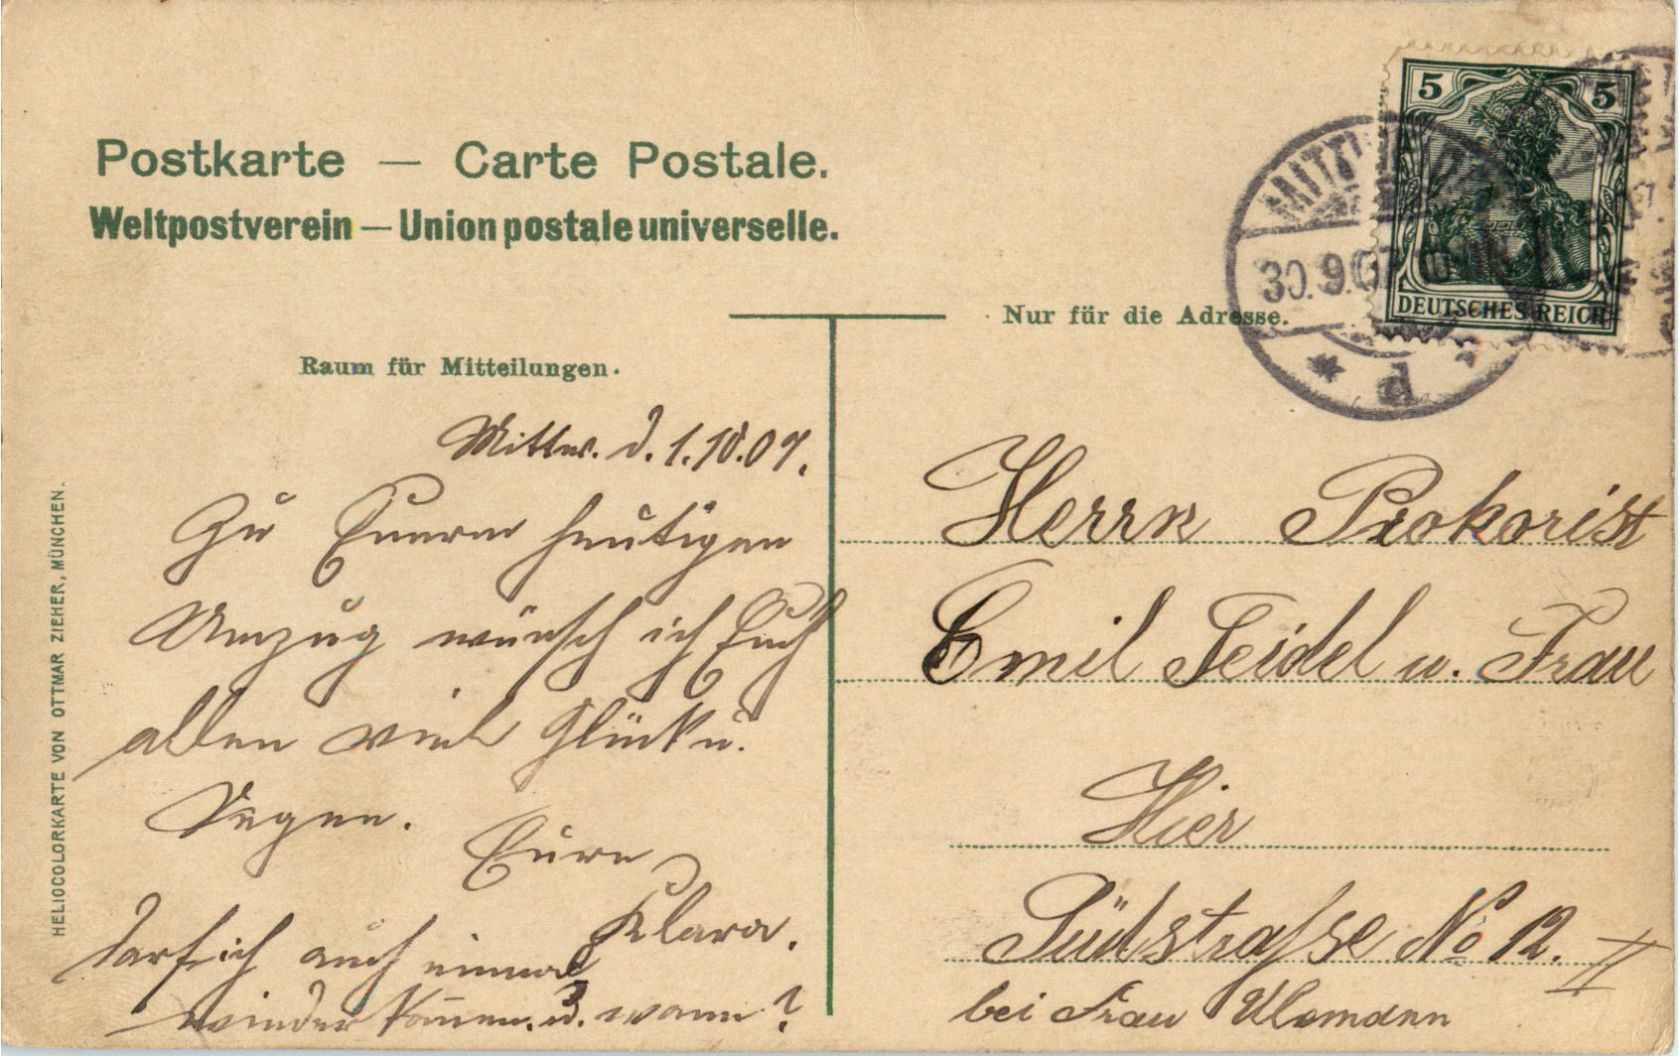 Postkarte — Carte Postale.
Weltpostverein — Union postale universelle.
5 5
DEUTSCHES REICH
MITTW
30.9.07
d
Nur für die Adresse.
Raum für Mitteilungen.
Mittw. d. 1.10.07.
Zu Euerm heutigen
Umzug wünsch ich Euch
allen viel Glück u.
Segen.
Eure
Klara.
darf ich auch einmal
wieder kommen. u. wann?
Herrn Prokorist
Emil Seidel u. Frau
Hier
Südstrasse No 12. II
bei Frau Ulemann
HELIOCOLORKARTE VON OTTMAR ZIEHER, MÜNCHEN.